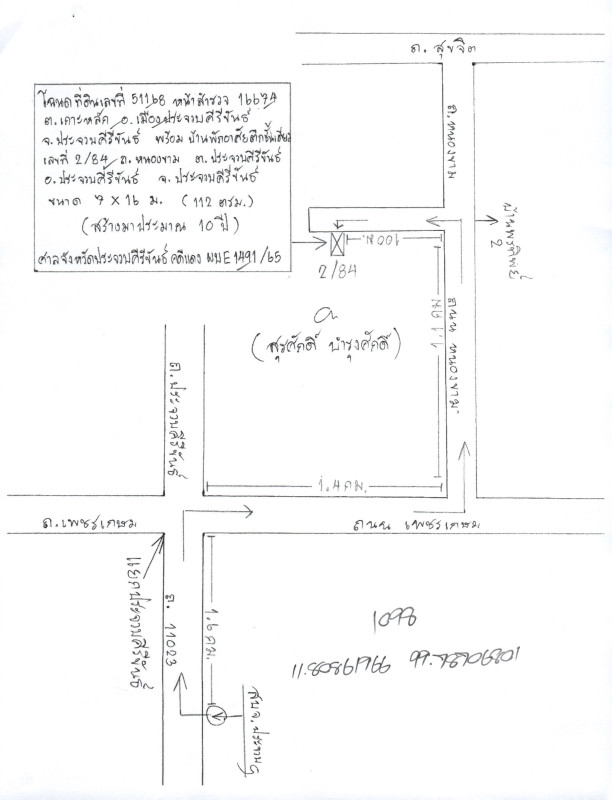 ถ. สุขจิต
โฉนดที่ดินเลขที่ 51168 หน้าสำรวจ 16674
ต.เกาะหลัก อ.เมืองประจวบคีรีขันธ์
จ.ประจวบคีรีขันธ์ พร้อมบ้านพักอาศัยตึกชั้นเดียว
เลขที่ 2/84 ถ.หนองขาม ต.ประจวบคีรีขันธ์
อ.ประจวบคีรีขันธ์ จ.ประจวบคีรีขันธ์
ขนาด 7 X 16 ม. (112 ตรม.)
(สร้างมาประมาณ 10 ปี)
ศาลจังหวัดประจวบคีรีขันธ์ คดีแดง ผบE1491/65
ถ.หนองขาม
2
100 ม.
2/84
ถนน หนองขาม
1.1 กม
(สุรศักดิ์ บำรุงศักดิ์)
ถ.ประจวบคีรีขันธ์
1.4 กม.
ถ.เพชรเกษม
ถนน เพชรเกษม
แยกประจวบคีรีขันธ์
ถ. 11023
1.6 กม.
1098